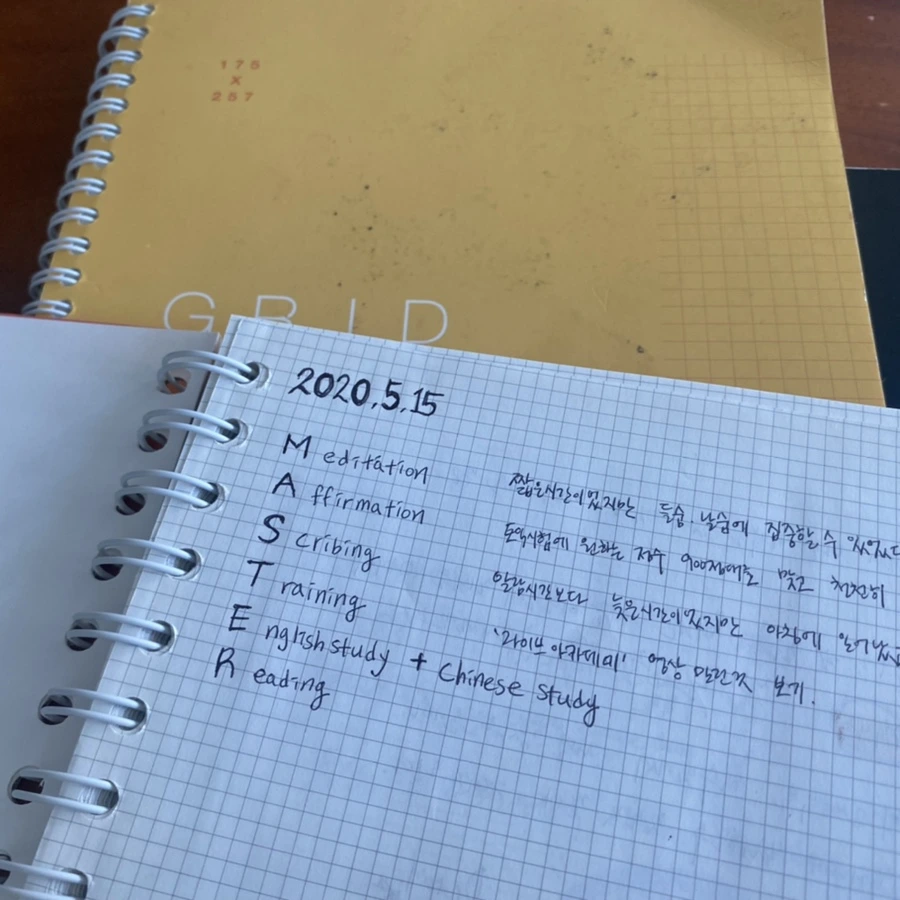 175
X
257
GRID
2020.5.15
Meditation 짧은시간이었지만 들숨.날숨에 집중할 수 있었다
Affirmation 토익시험에 원하는 점수 900점대로 맞고 천천히
Scribing 알람시간보다 늦은시간이었지만 아침에 일어났
Training '라이브 아카데미' 영상 밀린것 보기.
English study + Chinese study
Reading